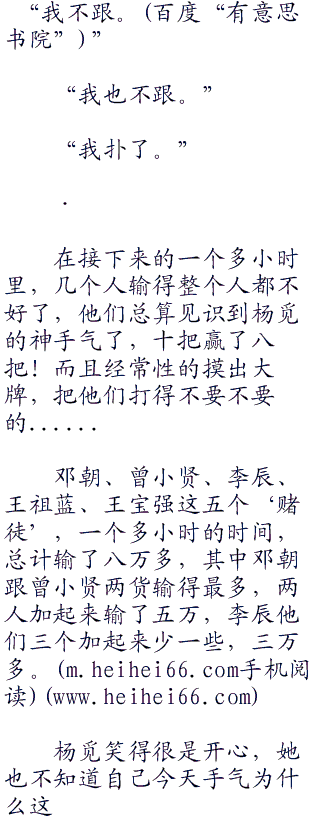 “我不跟。(百度“有意思
书院”)”
“我也不跟。”
“我扑了。”
.
在接下来的一个多小时
里，几个人输得整个人都不
好了，他们总算见识到杨觅
的神手气了，十把赢了八
把！而且经常性的摸出大
牌，把他们打得不要不要
的......
邓朝、曾小贤、李辰、
王祖蓝、王宝强这五个‘赌
徒’，一个多小时的时间，
总计输了八万多，其中邓朝
跟曾小贤两货输得最多，两
人加起来输了五万，李辰他
们三个加起来少一些，三万
多。(m.heihei66.com手机阅
读)(www.heihei66.com)
杨觅笑得很是开心，她
也不知道自己今天手气为什
么这